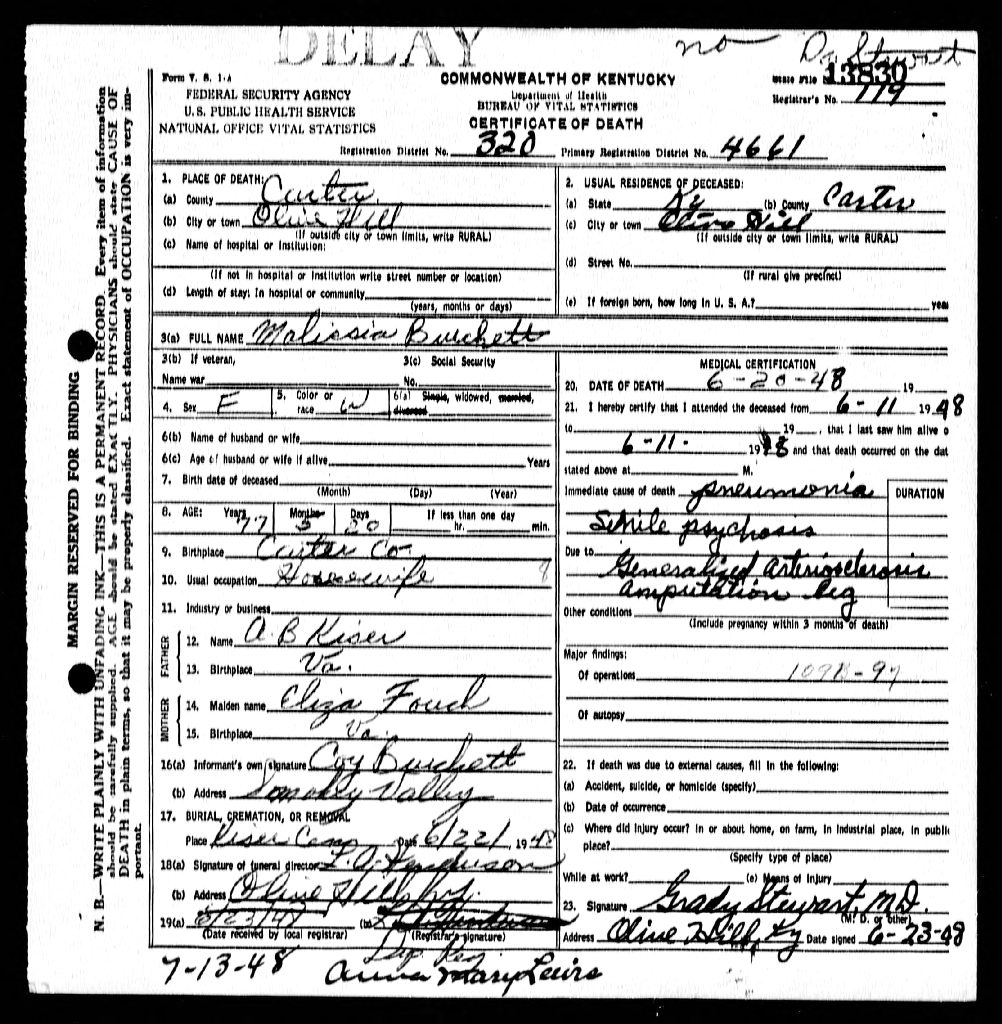 DELAY
no Dr Stewart
Form V. S. 1-A
COMMONWEALTH OF KENTUCKY
State File No. 13830
FEDERAL SECURITY AGENCY
Department of Health
Registrar's No. 119
U.S. PUBLIC HEALTH SERVICE
BUREAU OF VITAL STATISTICS
NATIONAL OFFICE VITAL STATISTICS
CERTIFICATE OF DEATH
Registration District No. 320 Primary Registration District No. 4661
MARGIN RESERVED FOR BINDING
N. B.—WRITE PLAINLY WITH UNFADING INK—THIS IS A PERMANENT RECORD. Every item of information
should be carefully supplied. AGE should be stated EXACTLY. PHYSICIANS should state CAUSE OF
DEATH in plain terms, so that it may be properly classified. Exact statement of OCCUPATION is very im-
portant.
1. PLACE OF DEATH:
(a) County Carter
(b) City or town Olive Hill
(If outside city or town limits, write RURAL)
(c) Name of hospital or institution:
(If not in hospital or institution write street number or location)
(d) Length of stay: In hospital or community
(years, months or days)
2. USUAL RESIDENCE OF DECEASED:
(a) State Ky (b) County Carter
(c) City or town Olive Hill
(If outside city or town limits, write RURAL)
(d) Street No.
(If rural give precinct)
(e) If foreign born, how long in U. S. A.? yea
3(a) FULL NAME Malissia Burchett
3(b) If veteran,
Name war
3(c) Social Security
No.
4. Sex F
5. Color or
race W
6(a) Single, widowed, married,
divorced
6(b) Name of husband or wife
6(c) Age of husband or wife if alive Years
7. Birth date of deceased
(Month) (Day) (Year)
8. AGE: Years Months Days If less than one day
77 3 20 hr. min.
9. Birthplace Carter Co
10. Usual occupation Housewife 8
11. Industry or business
FATHER
12. Name A. B Kiser
13. Birthplace Va.
MOTHER
14. Maiden name Eliza Fouch
15. Birthplace Va.
16(a) Informant's own signature Coy Burchett
(b) Address Smokey Valley
17. BURIAL, CREMATION, OR REMOVAL
Place Kiser Cem Date 6/22/ 1948
18(a) Signature of funeral director
(b) Address Olive Hill Ky.
19(a) 6/23/48 (b)
(Date received by local registrar) (Registrar's signature)
Dep. Reg.
7-13-48 Anna Mary Lewis
MEDICAL CERTIFICATION
20. DATE OF DEATH 6-20-48 19
21. I hereby certify that I attended the deceased from 6-11 1948
to 19 , that I last saw him alive o
6-11- 1948 and that death occurred on the dat
stated above at M.
Immediate cause of death pneumonia
DURATION
Senile psychosis
Due to Generalized arteriosclerosis
amputation leg
Other conditions
(Include pregnancy within 3 months of death)
Major findings:
Of operations 109B-97
Of autopsy
22. If death was due to external causes, fill in the following:
(a) Accident, suicide, or homicide (specify)
(b) Date of occurrence
(c) Where did injury occur? In or about home, on farm, in industrial place, in public
place?
(Specify type of place)
While at work? (e) Means of Injury
23. Signature Grady Stewart M.D.
(M. D. or other)
Address Olive Hill, Ky Date signed 6-23-48